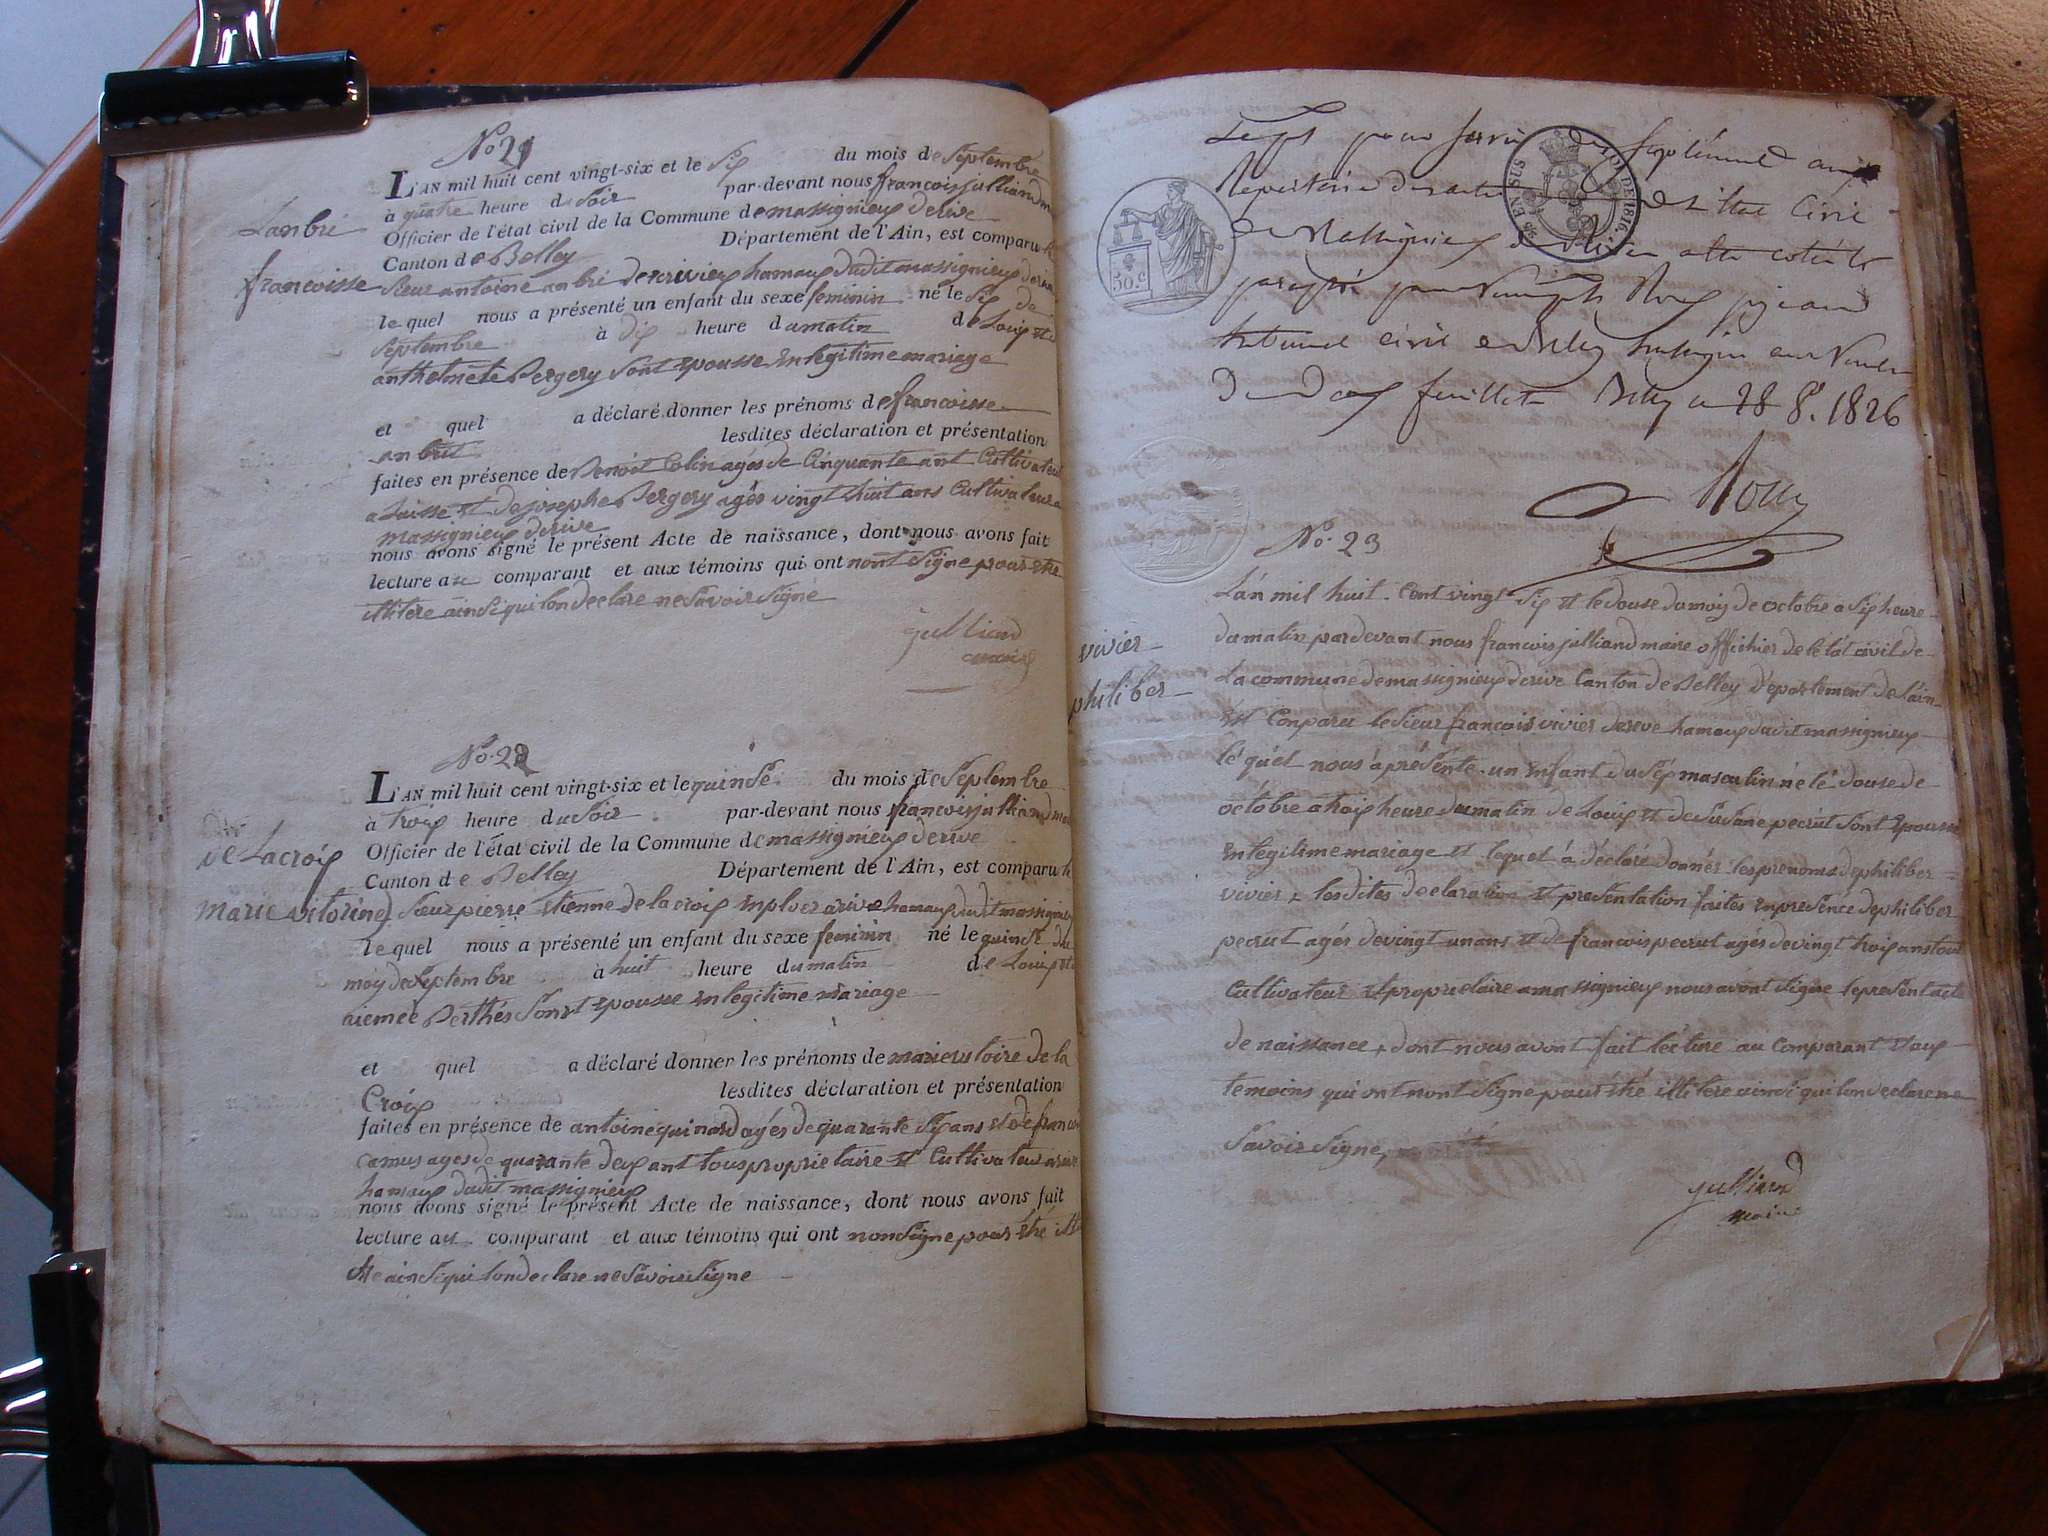 No 21
L'AN mil huit cent vingt-six et le six du mois de septembre
à quatre heure du soir par-devant nous francois julliand m
Officier de l'état civil de la Commune de massignieux derive
Canton de Belley Département de l'Ain, est comparu
Lanbri
francoisse
sieur antoine anbri de crivieux hamaux dudit massignieux
le quel nous a présenté un enfant du sexe feminin né le six de
septembre à dix heure du matin de Louis et
anthelmete Pergery sont epousse en legitime mariage
et quel a déclaré donner les prénoms de francoisse
lesdites déclaration et présentation
faites en présence de Benoit Colin agés de Cinquante ant Cultivateur
et de josephe Pergery agés vingt huit ans Cultivateur a
massignieux derive
nous avons signé le présent Acte de naissance, dont nous avons fait
lecture au comparant et aux témoins qui ont nont signe pour etre
illitere ainsi qui lon declare ne savoir signe
julliand
maire
No. 22
L'AN mil huit cent vingt-six et le quinse du mois de septembre
à trois heure du soir par-devant nous francois julliand ma
Officier de l'état civil de la Commune de massignieux derive
Canton de Belley Département de l'Ain, est comparu
de Lacroix
marie vitorine
sieur pierre etienne de la croix a rive hamaux dudit massignieux
le quel nous a présenté un enfant du sexe feminin né le quinse du
moy de septembre à huit heure du matin de Louis et
aiemée Berthés sont epousse en legitime mariage
et quel a déclaré donner les prénoms de marie de la
Croix lesdites déclaration et présentation
faites en présence de antoine quinard agés de quarante six ans et de francois
camus agés de quarante deux ant tous proprietaire et Cultivateur a rive
hamaux dudit massignieux
nous avons signé le présent Acte de naissance, dont nous avons fait
lecture au comparant et aux témoins qui ont non signe pour etre illi
ainsi qui lon declare ne savoir signe
pour servir de suplément au
Repertoire des actes de l'état Civil
de Massignieux de Rive
tribunal civil de Belley
de deux feuillets Belley le 28 8. 1826
EN SUS
LOI DE 1816
50.c
No. 23
vivier
philiber
L'an mil huit cent vingt six et le douse du moy de octobre a six heure
du matin pardevant nous francois julliand maire offichier de le tât civil de
La commune de massignieux derive Canton de Belley Departement de l'ain
est Conparu le sieur francois vivier de reve hamaux dudit massignieux
lé quel nous a présénté un enfant du sex masculin né le douse de
octobre a trois heure du matin de Louis et de Susane pecrut sont epousse
en legitime mariage et lequel à déclaré donnér les prenoms de philiber
vivier lesdites declaration et presentation faites en presence de philiber
pecrut agés de vingt un ans et de francois pecrut agés de vingt trois ans tout
cultivateur et proprietaire a massignieux nous avont signe le present acte
de naissance, dont nous avont fait lecture au Comparant et aux
temoins qui ont nont signe pour etre illitere ainsi qui lon declare ne
savoir signe,
julliand
maire